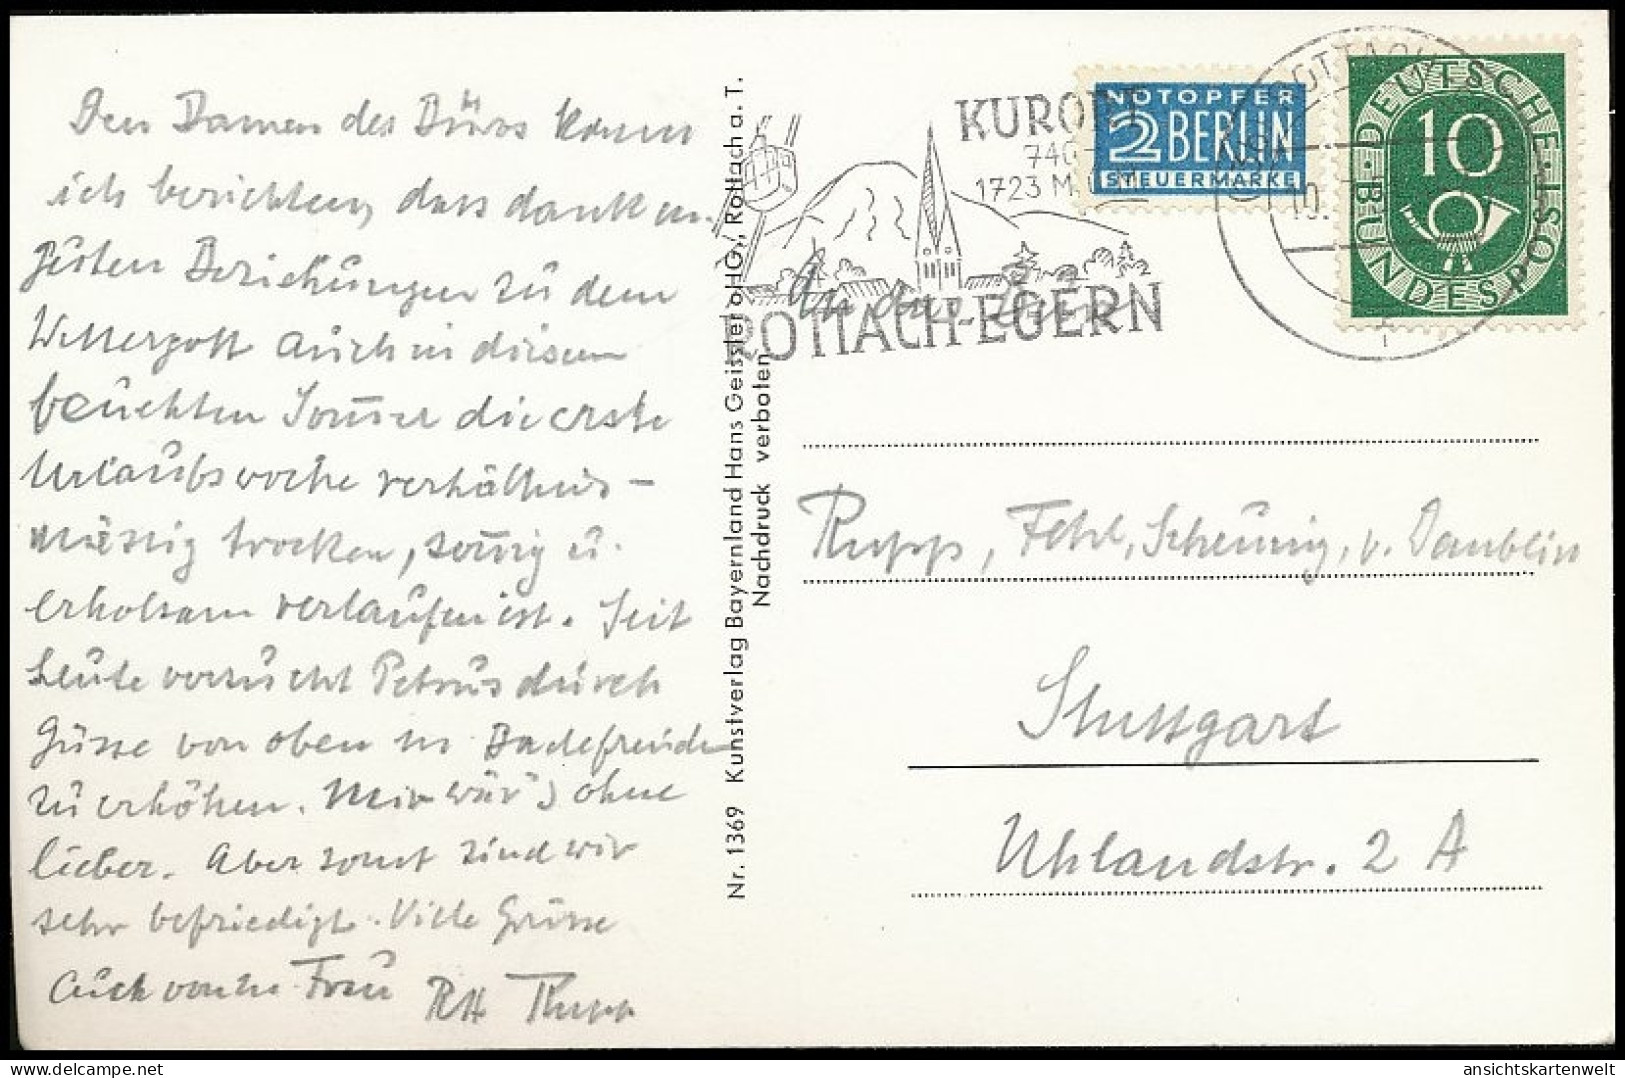 Den Damen des Büros kann
ich berichten, dass dank un.
Beziehungen zu dem
Wettergott auch in diesem
feuchten Sommer die erste
Urlaubswoche verhältnis-
mässig trocken, sonnig u.
erholsam verlaufen ist. Seit
heute versucht Petrus durch
Güsse von oben uns. Badefreude
zu erhöhen. Mir wär's ohne
lieber. Aber sonst sind wir
sehr befriedigt. Viele Grüsse
auch von m. Frau
Rupp
Nr. 1369 Kunstverlag Bayernland Hans Geissler oHG., Rottach a. T.
Nachdruck verboten
KURORT
740-
1723 M.
ROTTACH-EGERN
NOTOPFER
2 BERLIN
STEUERMARKE
ROTTACH
10.
DEUTSCHE BUNDESPOST
10
An das Büro
Rupp, Fehl, Scheunig, v. Daublin
Stuttgart
Uhlandstr. 2 A
ansichtskartenwelt